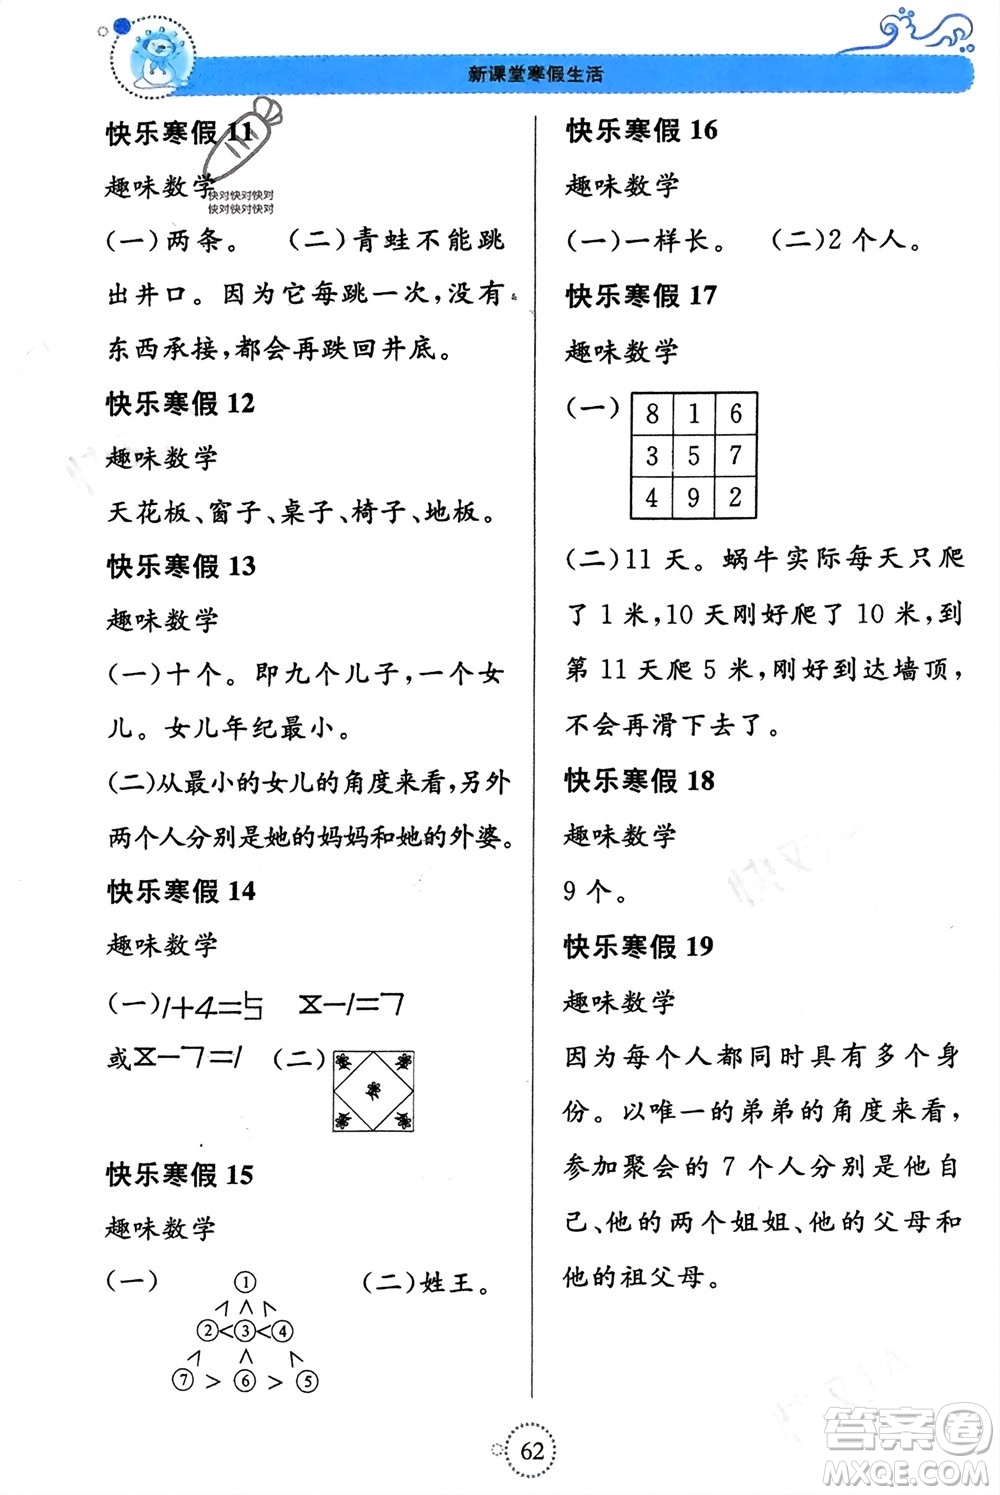 新课堂寒假生活
快乐寒假 11
趣味数学
快对快对快对
快对快对快对
(一)两条。 (二)青蛙不能跳
出井口。因为它每跳一次,没有
东西承接,都会再跌回井底。
快乐寒假 12
趣味数学
天花板、窗子、桌子、椅子、地板。
快乐寒假 13
趣味数学
(一)十个。即九个儿子,一个女
儿。女儿年纪最小。
(二)从最小的女儿的角度来看,另外
两个人分别是她的妈妈和她的外婆。
快乐寒假 14
趣味数学
(一)1+4=5 8-1=7
或8-7=1 (二)
快乐寒假 15
趣味数学
(一) ① (二)姓王。
∧ ∧ ∧
②<③<④
∧ ∧ ∧
⑦ > ⑥ > ⑤
快乐寒假 16
趣味数学
(一)一样长。 (二)2 个人。
快乐寒假 17
趣味数学
(一)
8 1 6
3 5 7
4 9 2
(二)11 天。蜗牛实际每天只爬
了 1 米,10 天刚好爬了 10 米,到
第 11 天爬 5 米,刚好到达墙顶,
不会再滑下去了。
快乐寒假 18
趣味数学
9 个。
快乐寒假 19
趣味数学
因为每个人都同时具有多个身
份。以唯一的弟弟的角度来看,
参加聚会的 7 个人分别是他自
己、他的两个姐姐、他的父母和
他的祖父母。
62
答案卷
MXQE.COM